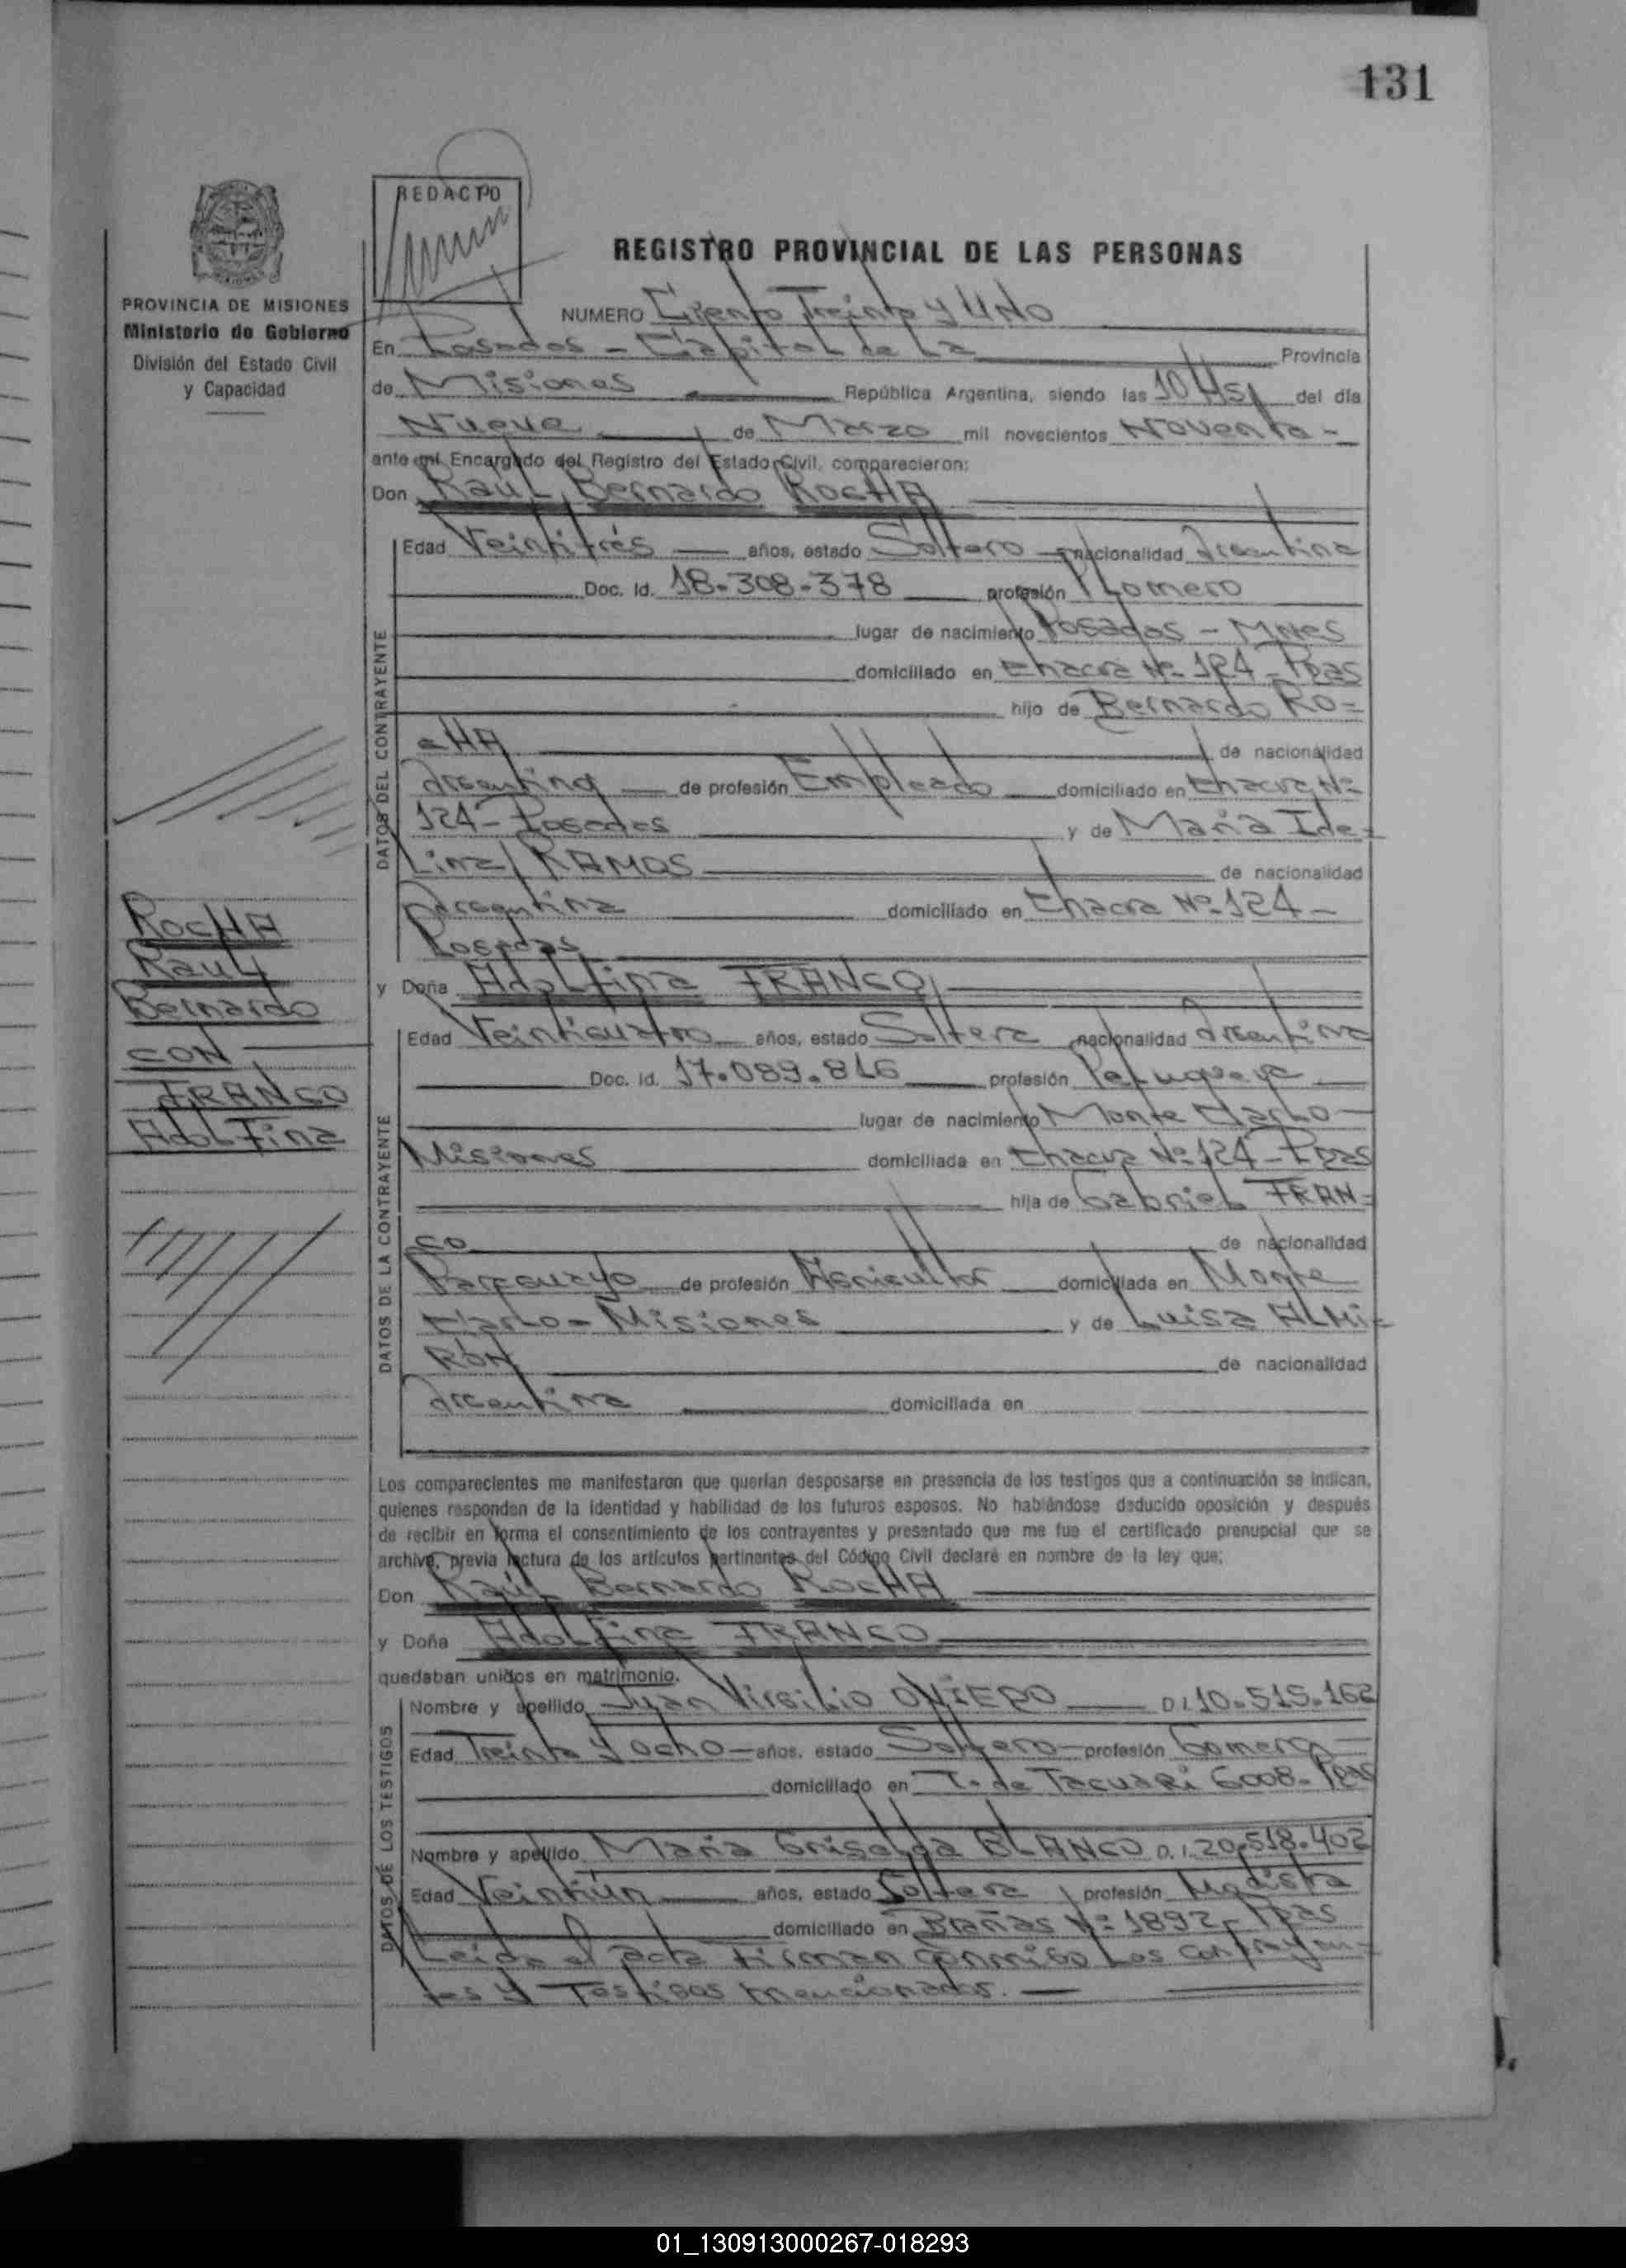 131
REDACTO
REGISTRO PROVINCIAL DE LAS PERSONAS
PROVINCIA DE MISIONES
Ministerio de Gobierno
División del Estado Civil
y Capacidad
NUMERO Ciento Treinta y UNO
En Posadas - Capital de La Provincia
de Misiones República Argentina, siendo las 10 Hs. del día
Nueve de Marzo mil novecientos Noventa -
ante mí Encargado del Registro del Estado Civil, comparecieron:
Don Raúl Bernardo ROCHA
DATOS DEL CONTRAYENTE
Edad Veintitrés años, estado Soltero nacionalidad Argentina
Doc. Id. 18-308-378 profesión Plomero
lugar de nacimiento Posadas - Mnes
domiciliado en Chacra Nº 124 - Pdas
hijo de Bernardo RO=
CHA de nacionalidad
Argentina de profesión Empleado domiciliado en Chacra Nº
124 - Posadas y de María Ide-
Lina RAMOS de nacionalidad
Argentina domiciliado en Chacra Nº 124 -
Posadas
ROCHA
Raul
Bernardo
CON
FRANCO
Adolfina
y Doña Adolfina FRANCO
DATOS DE LA CONTRAYENTE
Edad Veinticuatro años, estado Soltera nacionalidad Argentina
Doc. Id. 17.089.816 profesión Peluquera
lugar de nacimiento Monte Carlo -
Misiones domiciliada en Chacra Nº 124 - Pdas
hija de Gabriel FRAN=
CO de nacionalidad
Paraguayo de profesión Agricultor domiciliada en Monte
Carlo - Misiones y de Luisa ALMI=
RÓN de nacionalidad
Argentina domiciliada en
Los comparecientes me manifestaron que querían desposarse en presencia de los testigos que a continuación se indican,
quienes responden de la identidad y habilidad de los futuros esposos. No habiéndose deducido oposición y después
de recibir en forma el consentimiento de los contrayentes y presentado que me fue el certificado prenupcial que se
archiva, previa lectura de los artículos pertinentes del Código Civil declaré en nombre de la ley que:
Don Raúl Bernardo ROCHA
y Doña Adolfina FRANCO
quedaban unidos en matrimonio.
DATOS DE LOS TESTIGOS
Nombre y apellido Juan Virgilio OVIEDO D.I. 10.515.162
Edad Treinta y ocho años, estado Soltero profesión Comerc.
domiciliado en T. de Tacuarí 6008 - Pdas
Nombre y apellido María Griselda BLANCO D.I. 20.518.402
Edad Veintiún años, estado Soltera profesión Modista
domiciliado en Brañas Nº 1892 - Pdas
Leída el acta Firman conmigo Los Contrayen-
tes y Testigos mencionados.
01_130913000267-018293